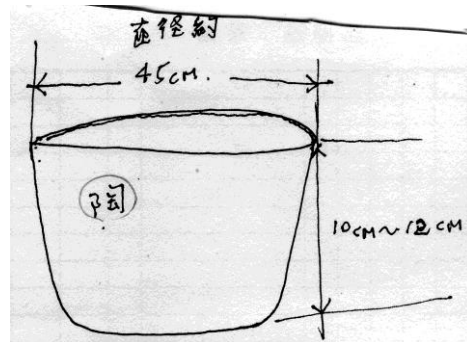 直径約
45cm.
陶
10cm~12cm